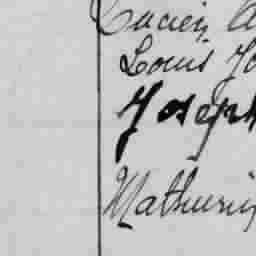 Lucien A
Louis Jo
Joseph
Mathurin